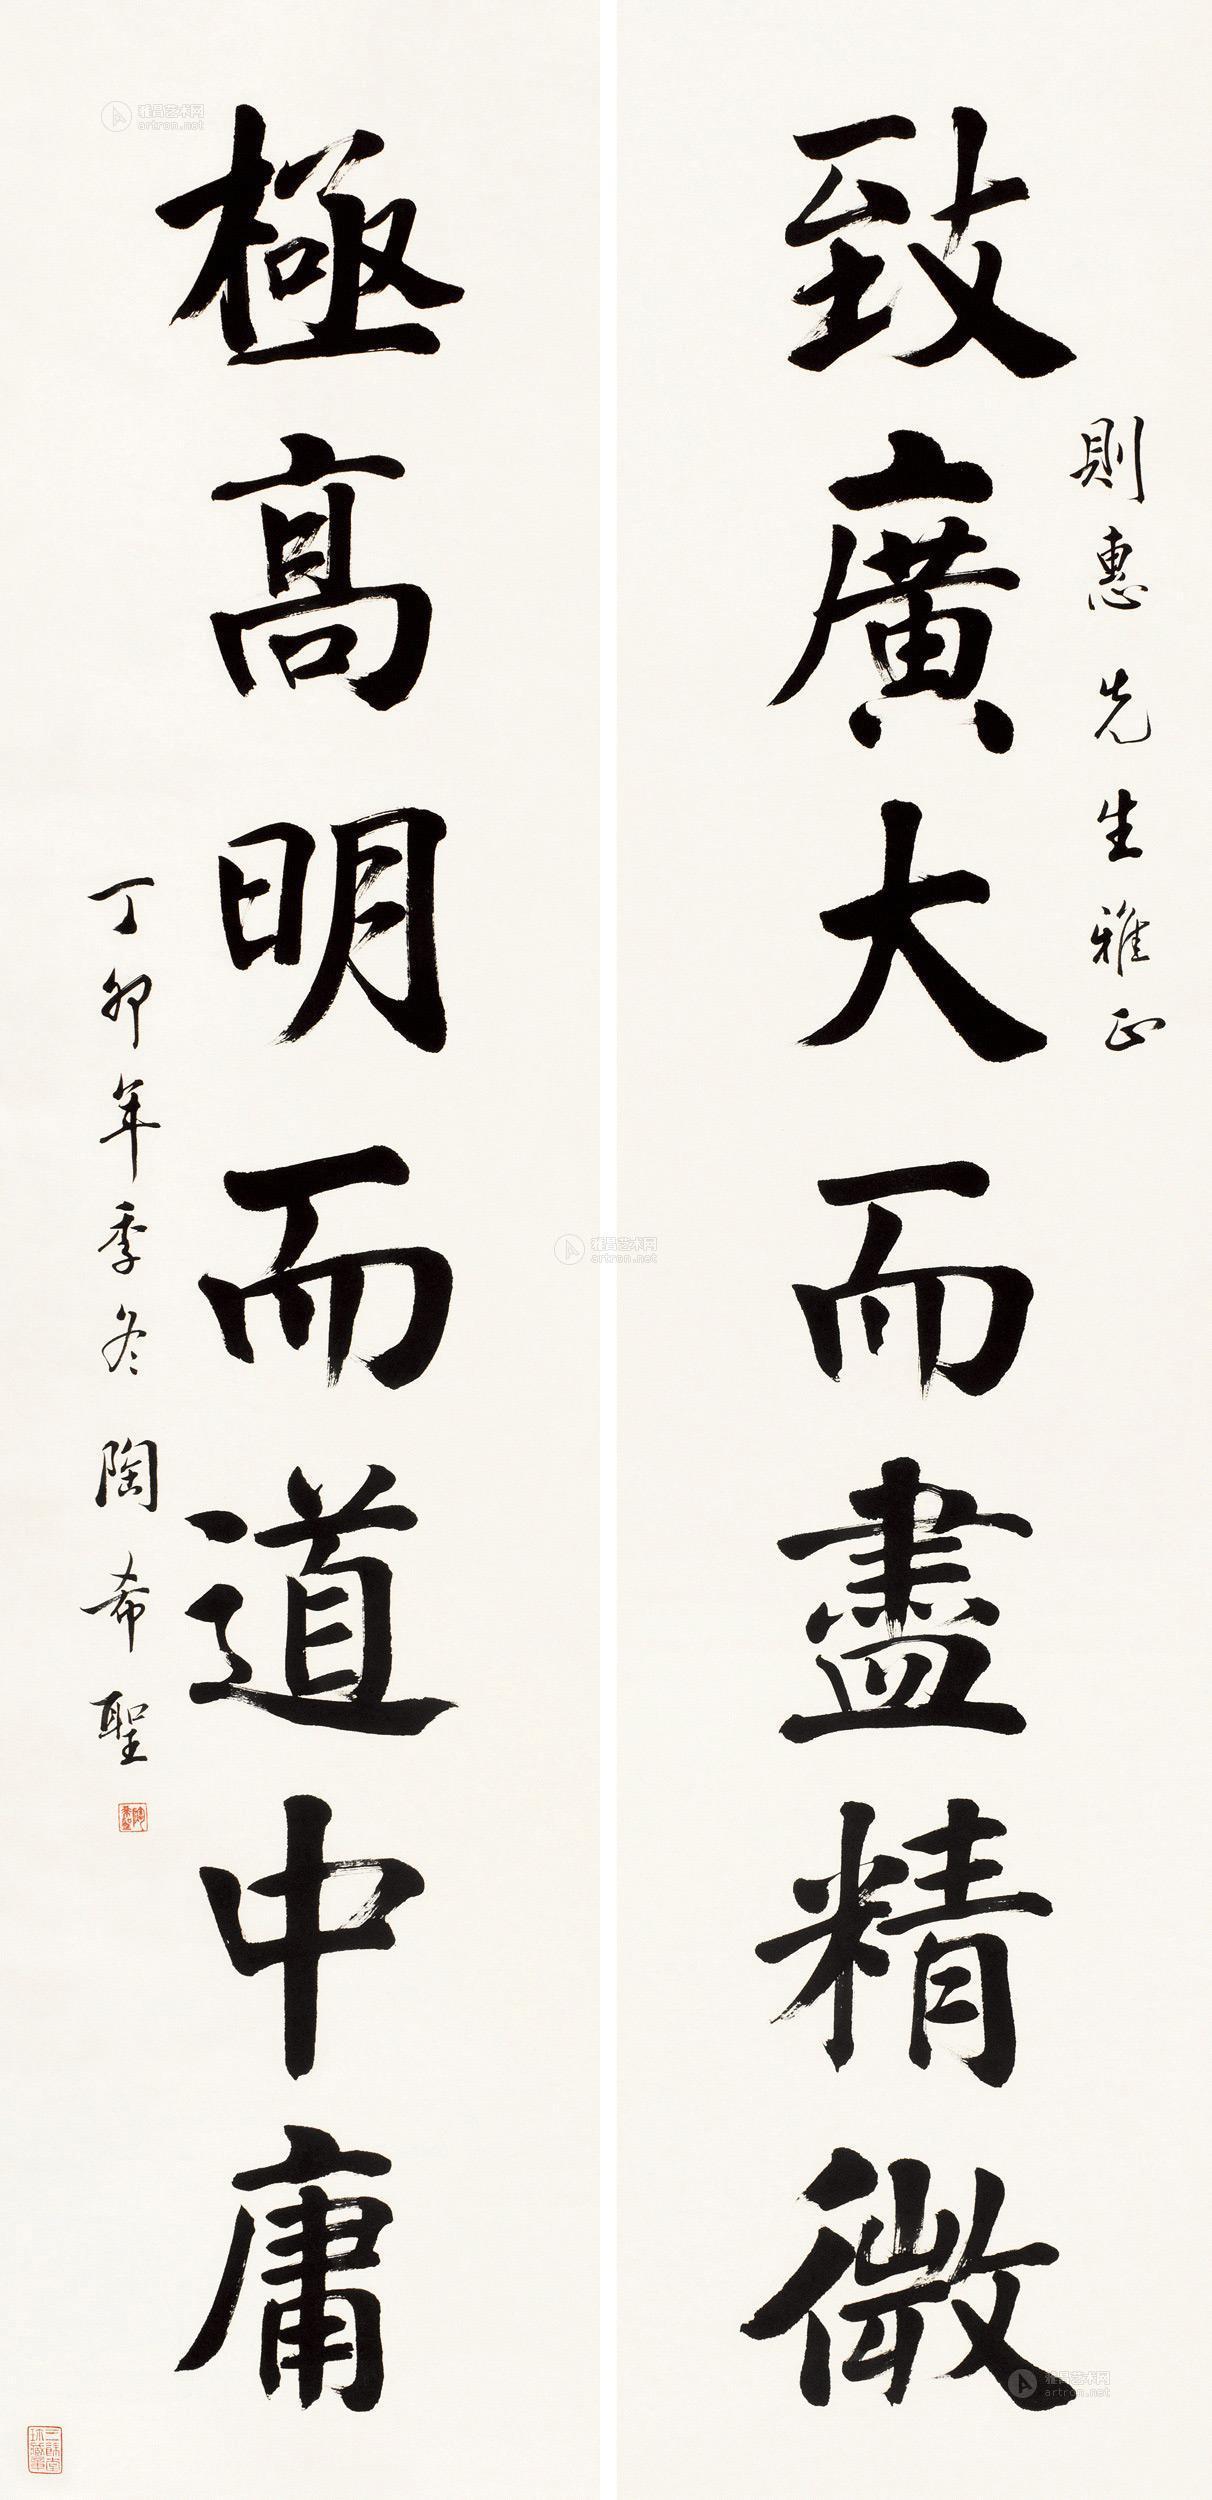 致廣大而盡精微
則惠先生雅正
極高明而道中庸
丁卯年季冬 陶希聖
陶希聖
雅昌艺术网
artron.net
雅昌艺术网
artron.net
雅昌艺术网
artron.net